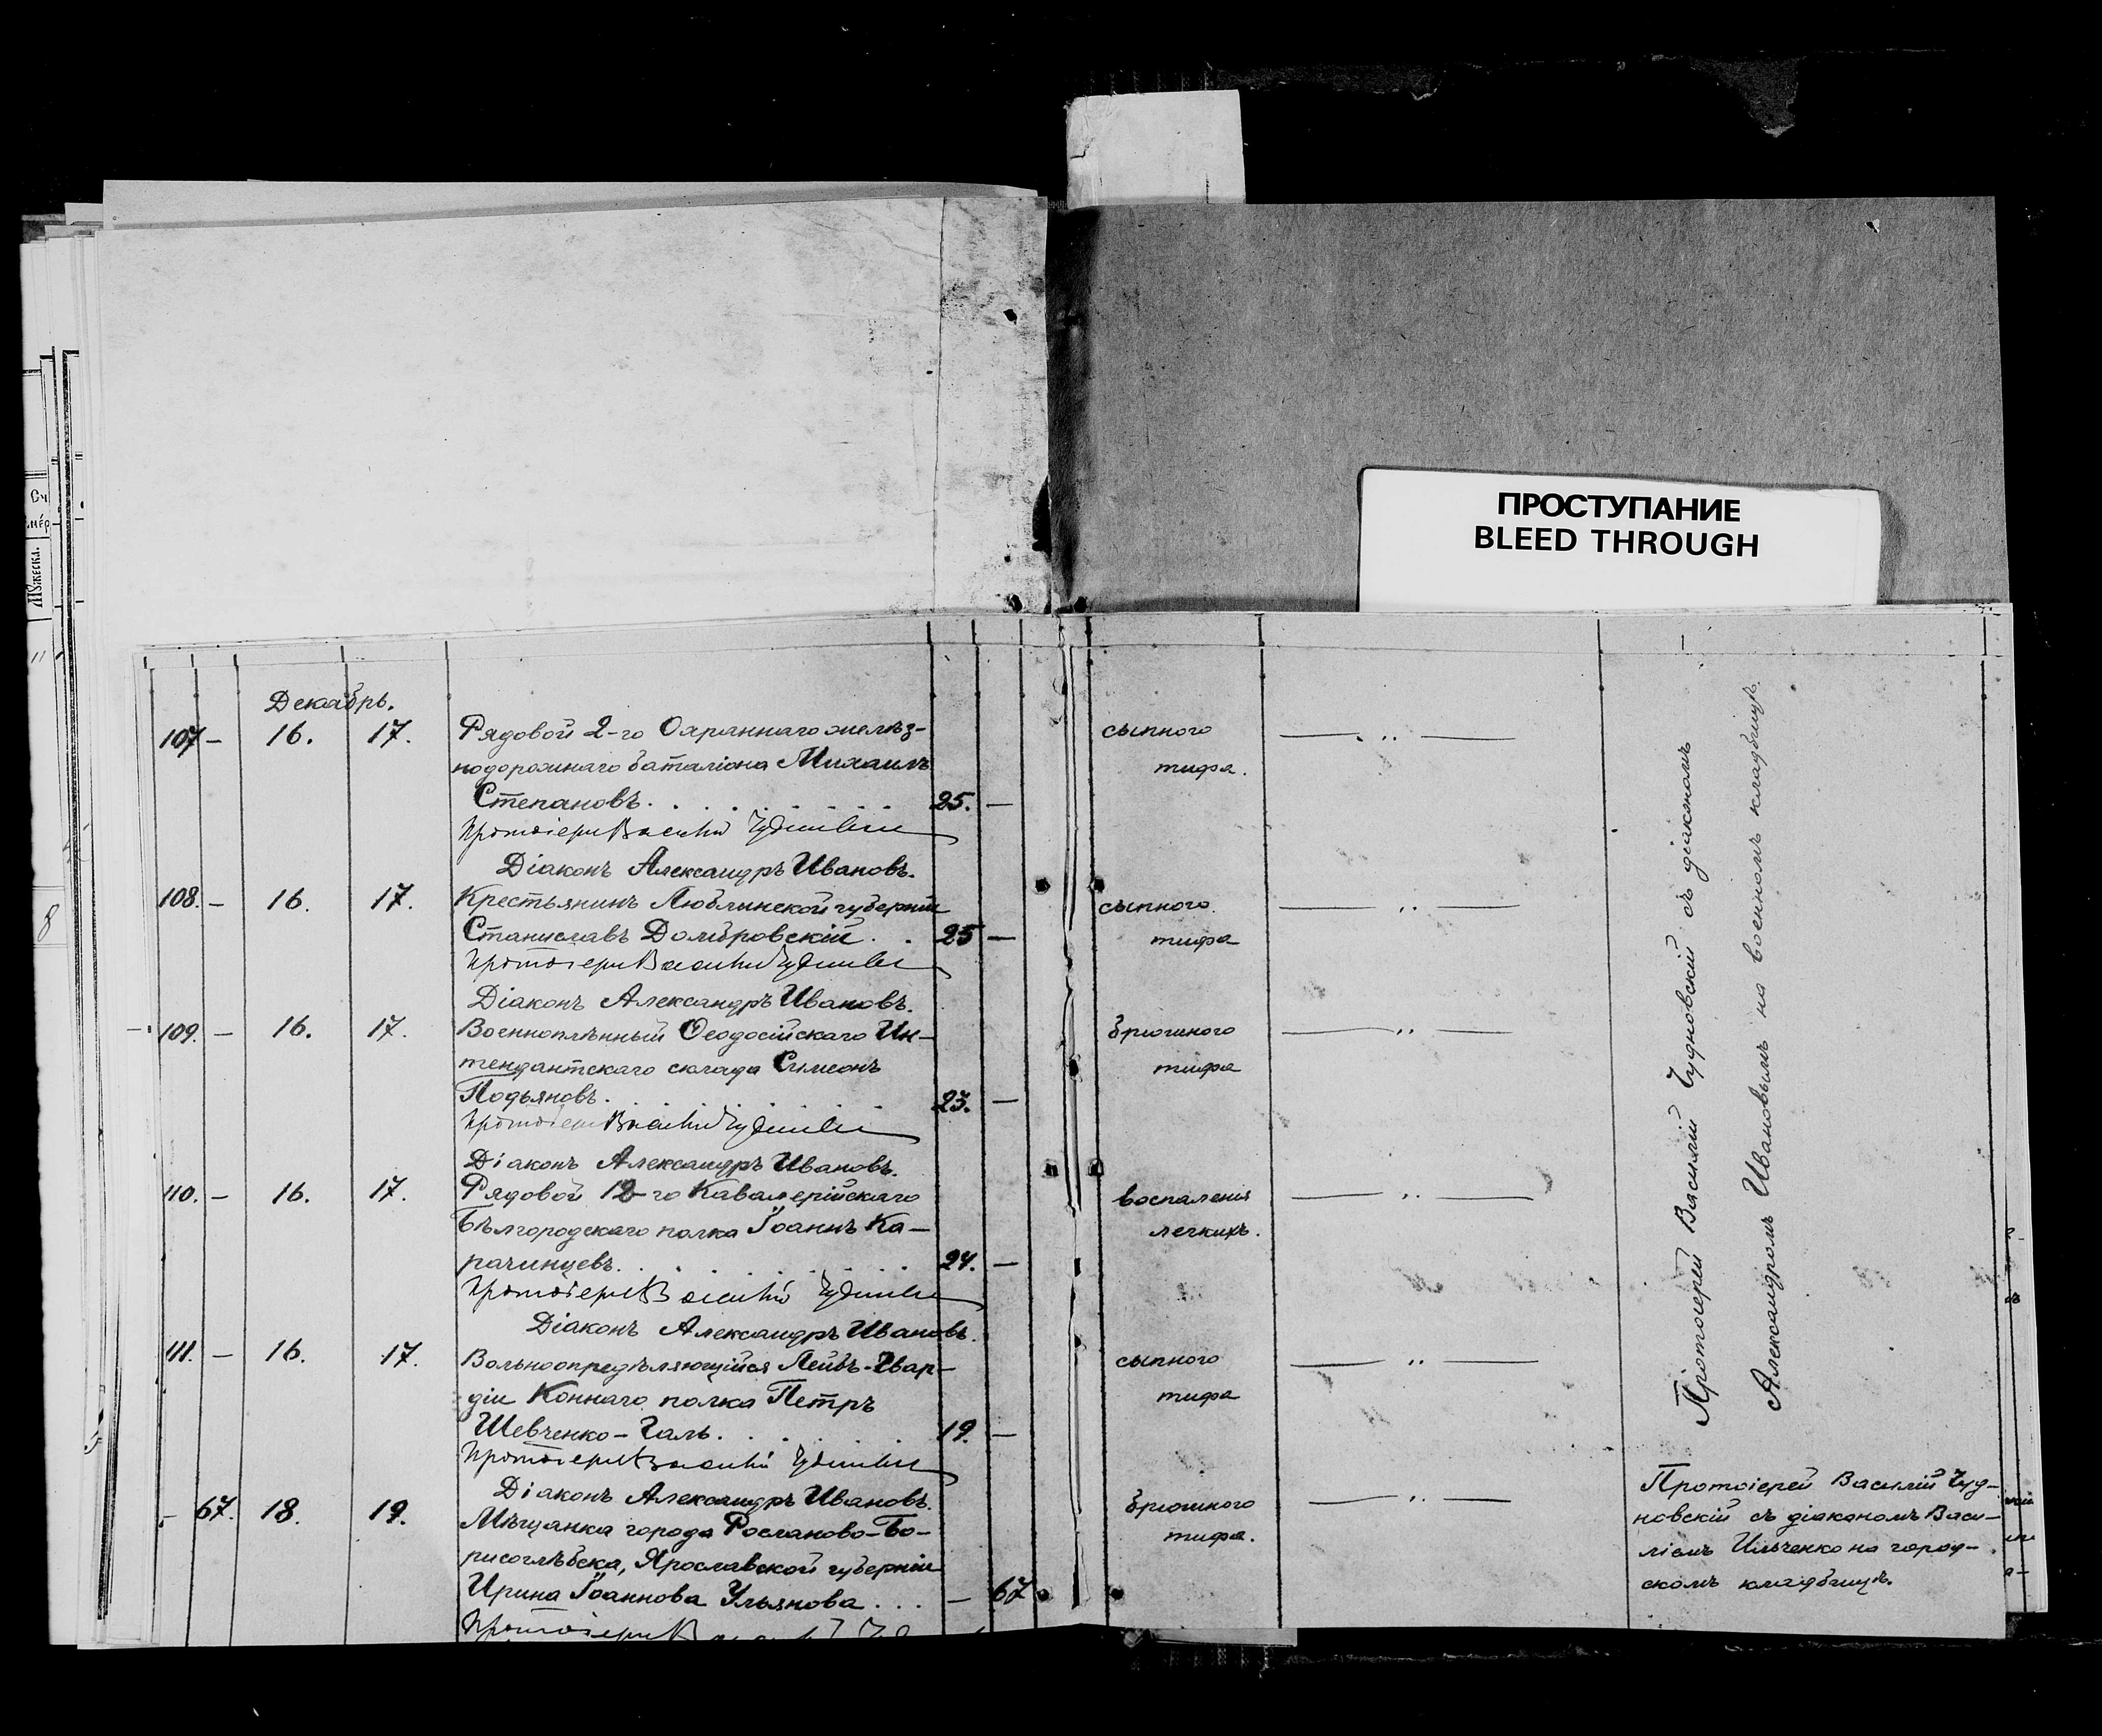 ПРОСТУПАНИЕ
BLEED THROUGH
Декабрь.
107 — 16. 17. Рядовой 2-го Охраннаго желѣз-
нодорожнаго баталіона Михаилъ
Степановъ. 25. —
сыпного
тифа.
Протоіерей Василій Чудновскій
Діаконъ Александръ Ивановъ.
108. — 16. 17. Крестьянинъ Люблинской губерніи
Станиславъ Домбровскій. 25 —
сыпного
тифа
Протоіерей Василій Чудновскій
Діаконъ Александръ Ивановъ.
109. — 16. 17. Военноплѣнный Ѳеодосійскаго Ин-
тендантскаго склада Симеонъ
Подьяновъ. 23. —
брюшного
тифа
Протоіерей Василій Чудновскій
Діаконъ Александръ Ивановъ.
110. — 16. 17. Рядовой 12-го Кавалерійскаго
Бѣлгородскаго полка Іоаннъ Ка-
рачинцевъ. 24. —
воспаленія
легкихъ.
Протоіерей Василій Чудновскій
Діаконъ Александръ Ивановъ.
111. — 16. 17. Вольноопредѣляющійся Лейбъ-Гвар-
діи Коннаго полка Петръ
Шевченко-Галь. 19. —
сыпного
тифа
Протоіерей Василій Чудновскій
Діаконъ Александръ Ивановъ.
Протоіерей Василій Чудновскій съ діакономъ
Александромъ Ивановымъ на военномъ кладбищѣ.
— 67. 18. 19. Мѣщанка города Росланово-Бо-
рисоглѣбска, Ярославской губерніи
Ирина Іоаннова Ульянова . . . — 67
брюшного
тифа.
Протоіерей Василій Чуд-
новскій съ діакономъ Васи-
ліемъ Ильченко на город-
скомъ кладбищѣ.